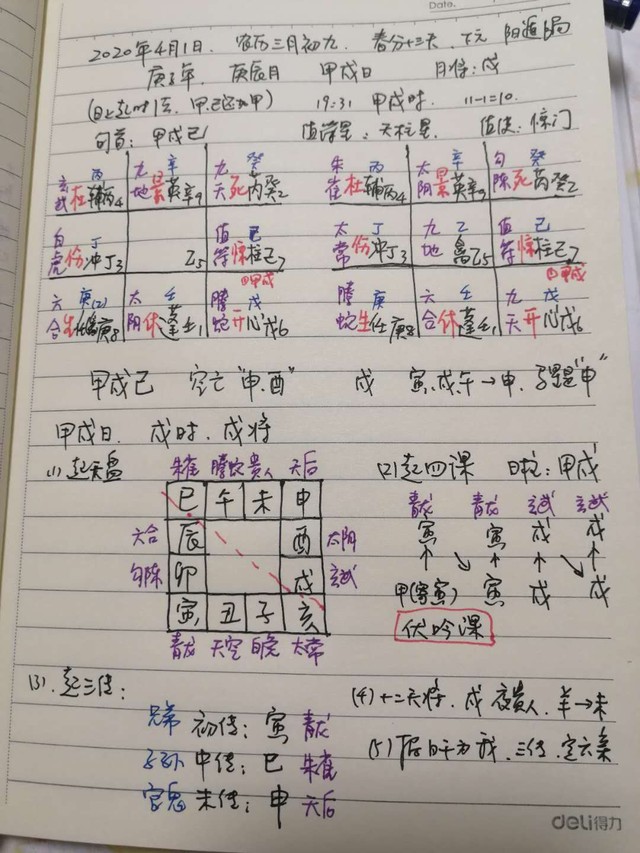 Date.
2020年4月1日. 农历三月初九. 春分十三天. 下元 阳遁局
庚子年. 庚辰月 甲戌日 月将:戌
(日上起时法. 甲己还加甲) 19:31 甲戌时. 11-1=10.
旬首:甲戌己 值符星:天柱星. 值使:惊门
玄武 丙 杜辅丙4 九地 辛 景英辛9 九天 癸 死芮癸2 朱雀 丙 杜辅丙4 太阴 辛 景英辛9 勾陈 癸 死芮癸2
白虎 丁 伤冲丁3 乙5 值符 己 惊柱己7 太常 丁 伤冲丁3 九地 乙 禽乙5 值符 己 惊柱己7
甲戌 甲戌
六合 庚 生任庚8 太阴 壬 休蓬壬1 腾蛇 戊 开心戊6 腾蛇 庚 生任庚8 六合 壬 休蓬壬1 九天 戊 开心戊6
甲戌己 空亡"申.酉" 戌 寅.戌.午→申. 马星是"申"
甲戌日. 戌时. 戌将
(1)起天盘 朱雀 腾蛇 贵人 天后 (2)起四课 日柱:甲戌
巳 午 未 申 青龙 青龙 玄武 玄武
六合 辰 酉 太阴 寅 寅 戌 戌
勾陈 卯 戌 玄武
寅 丑 子 亥 甲(寄寅) 寅 戌 戌
青龙 天空 白虎 太常 伏吟课
(3).起三传: (4)十二天将. 戌 夜贵人. 羊→未
兄弟 初传:寅 青龙
子孙 中传:巳 朱雀 (5)据日干为我. 三传.定六亲
官鬼 末传:申 天后
deli得力